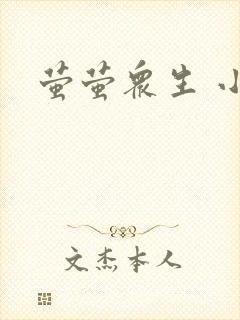 萤萤众生 小
文杰本人